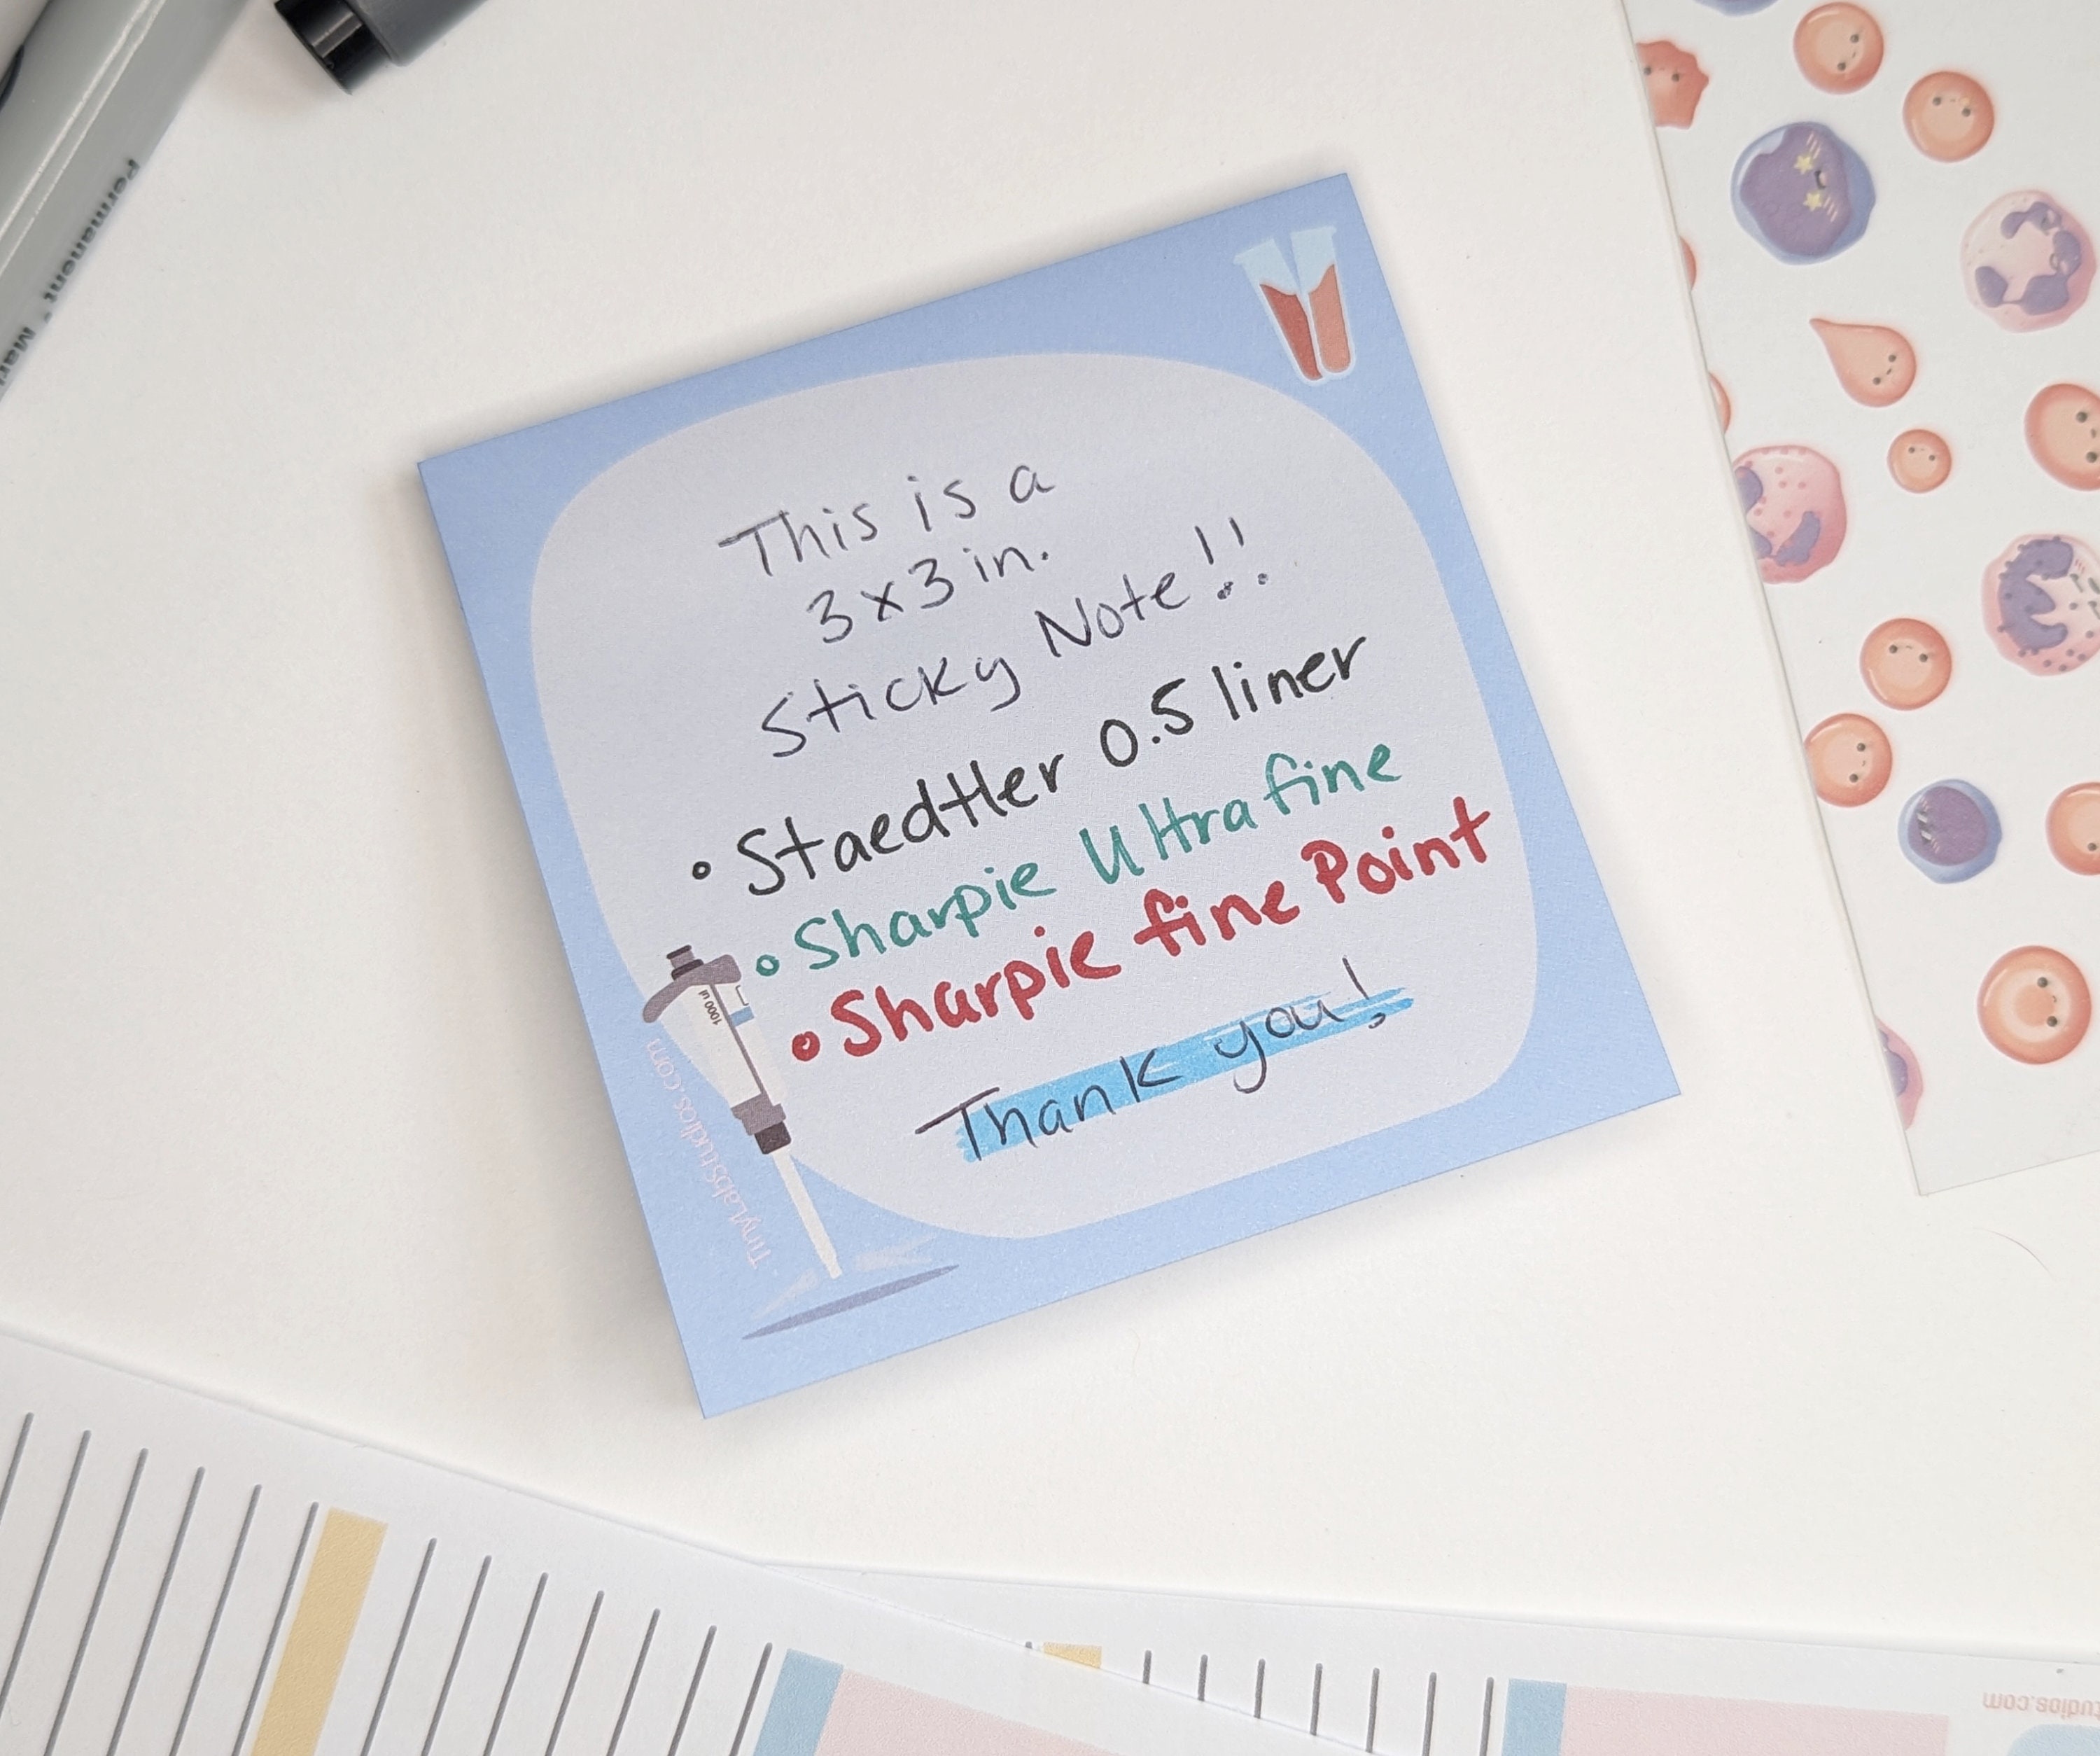 Permanent Mar
This is a
3x3 in.
Sticky Note!!
• Staedtler 0.5 liner
• Sharpie Ultra fine
• Sharpie fine Point
Thank you!
1000 ul
TinyLabStudios.com
tudios.com